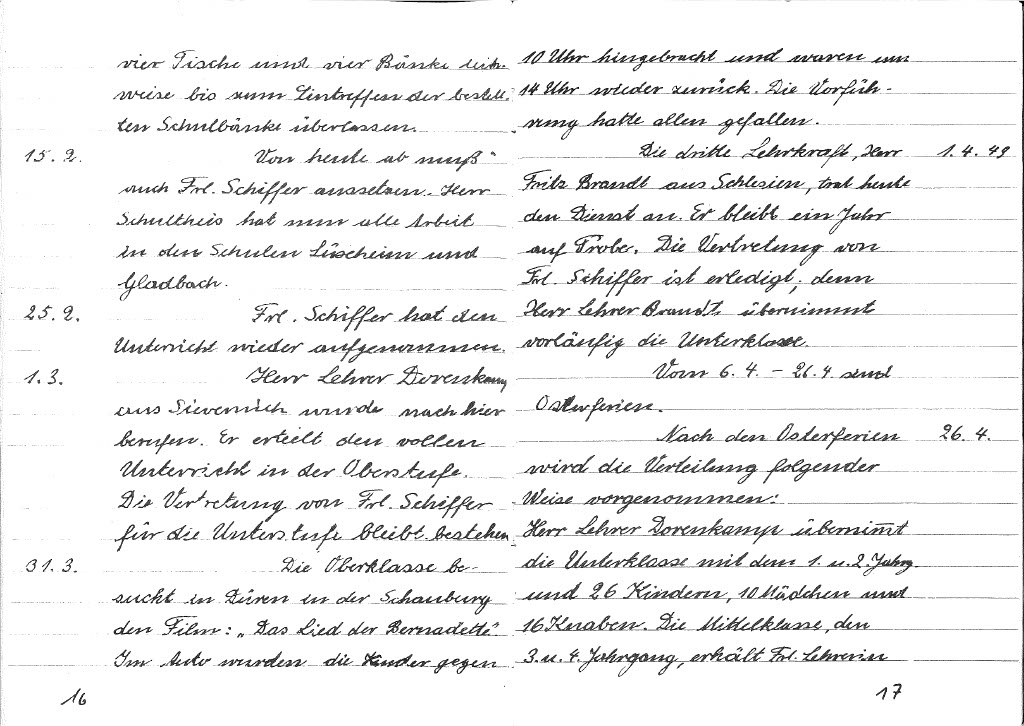 vier Tische und vier Bänke leih-
weise bis zum Eintreffen der bestell-
ten Schulbänke überlassen.
15. 2. Von heute ab muß
auch Frl. Schiffer aussetzen. Herr
Schultheis hat nun alle Arbeit
in den Schulen Lüxheim und
Gladbach.
25. 2. Frl. Schiffer hat den
Unterricht wieder aufgenommen.
1. 3. Herr Lehrer Dorenkamp
aus Sievernich wurde nach hier
berufen. Er erteilt den vollen
Unterricht in der Oberstufe.
Die Vertretung von Frl. Schiffer
für die Unterstufe bleibt bestehen.
31. 3. Die Oberklasse be-
sucht in Düren in der Schauburg
den Film: „Das Lied der Bernadette“
Im Auto wurden die Kinder gegen
16
10 Uhr hingebracht und waren um
14 Uhr wieder zurück. Die Vorfüh-
rung hatte allen gefallen.
Die dritte Lehrkraft, Herr 1. 4. 49
Fritz Brandt aus Schlesien, trat heute
den Dienst an. Er bleibt ein Jahr
auf Probe. Die Vertretung von
Frl. Schiffer ist erledigt, denn
Herr Lehrer Brandt übernimmt
vorläufig die Unterklasse.
Vom 6. 4. – 26. 4 sind
Osterferien.
Nach den Osterferien 26. 4.
wird die Verteilung folgender
Weise vorgenommen:
Herr Lehrer Dorenkamp übernim̅t
die Unterklasse mit dem 1. u. 2. Jahrg
und 26 Kindern, 10 Mädchen und
16 Knaben. Die Mittelklasse, den
3. u. 4. Jahrgang, erhält Frl. Lehrerin
17